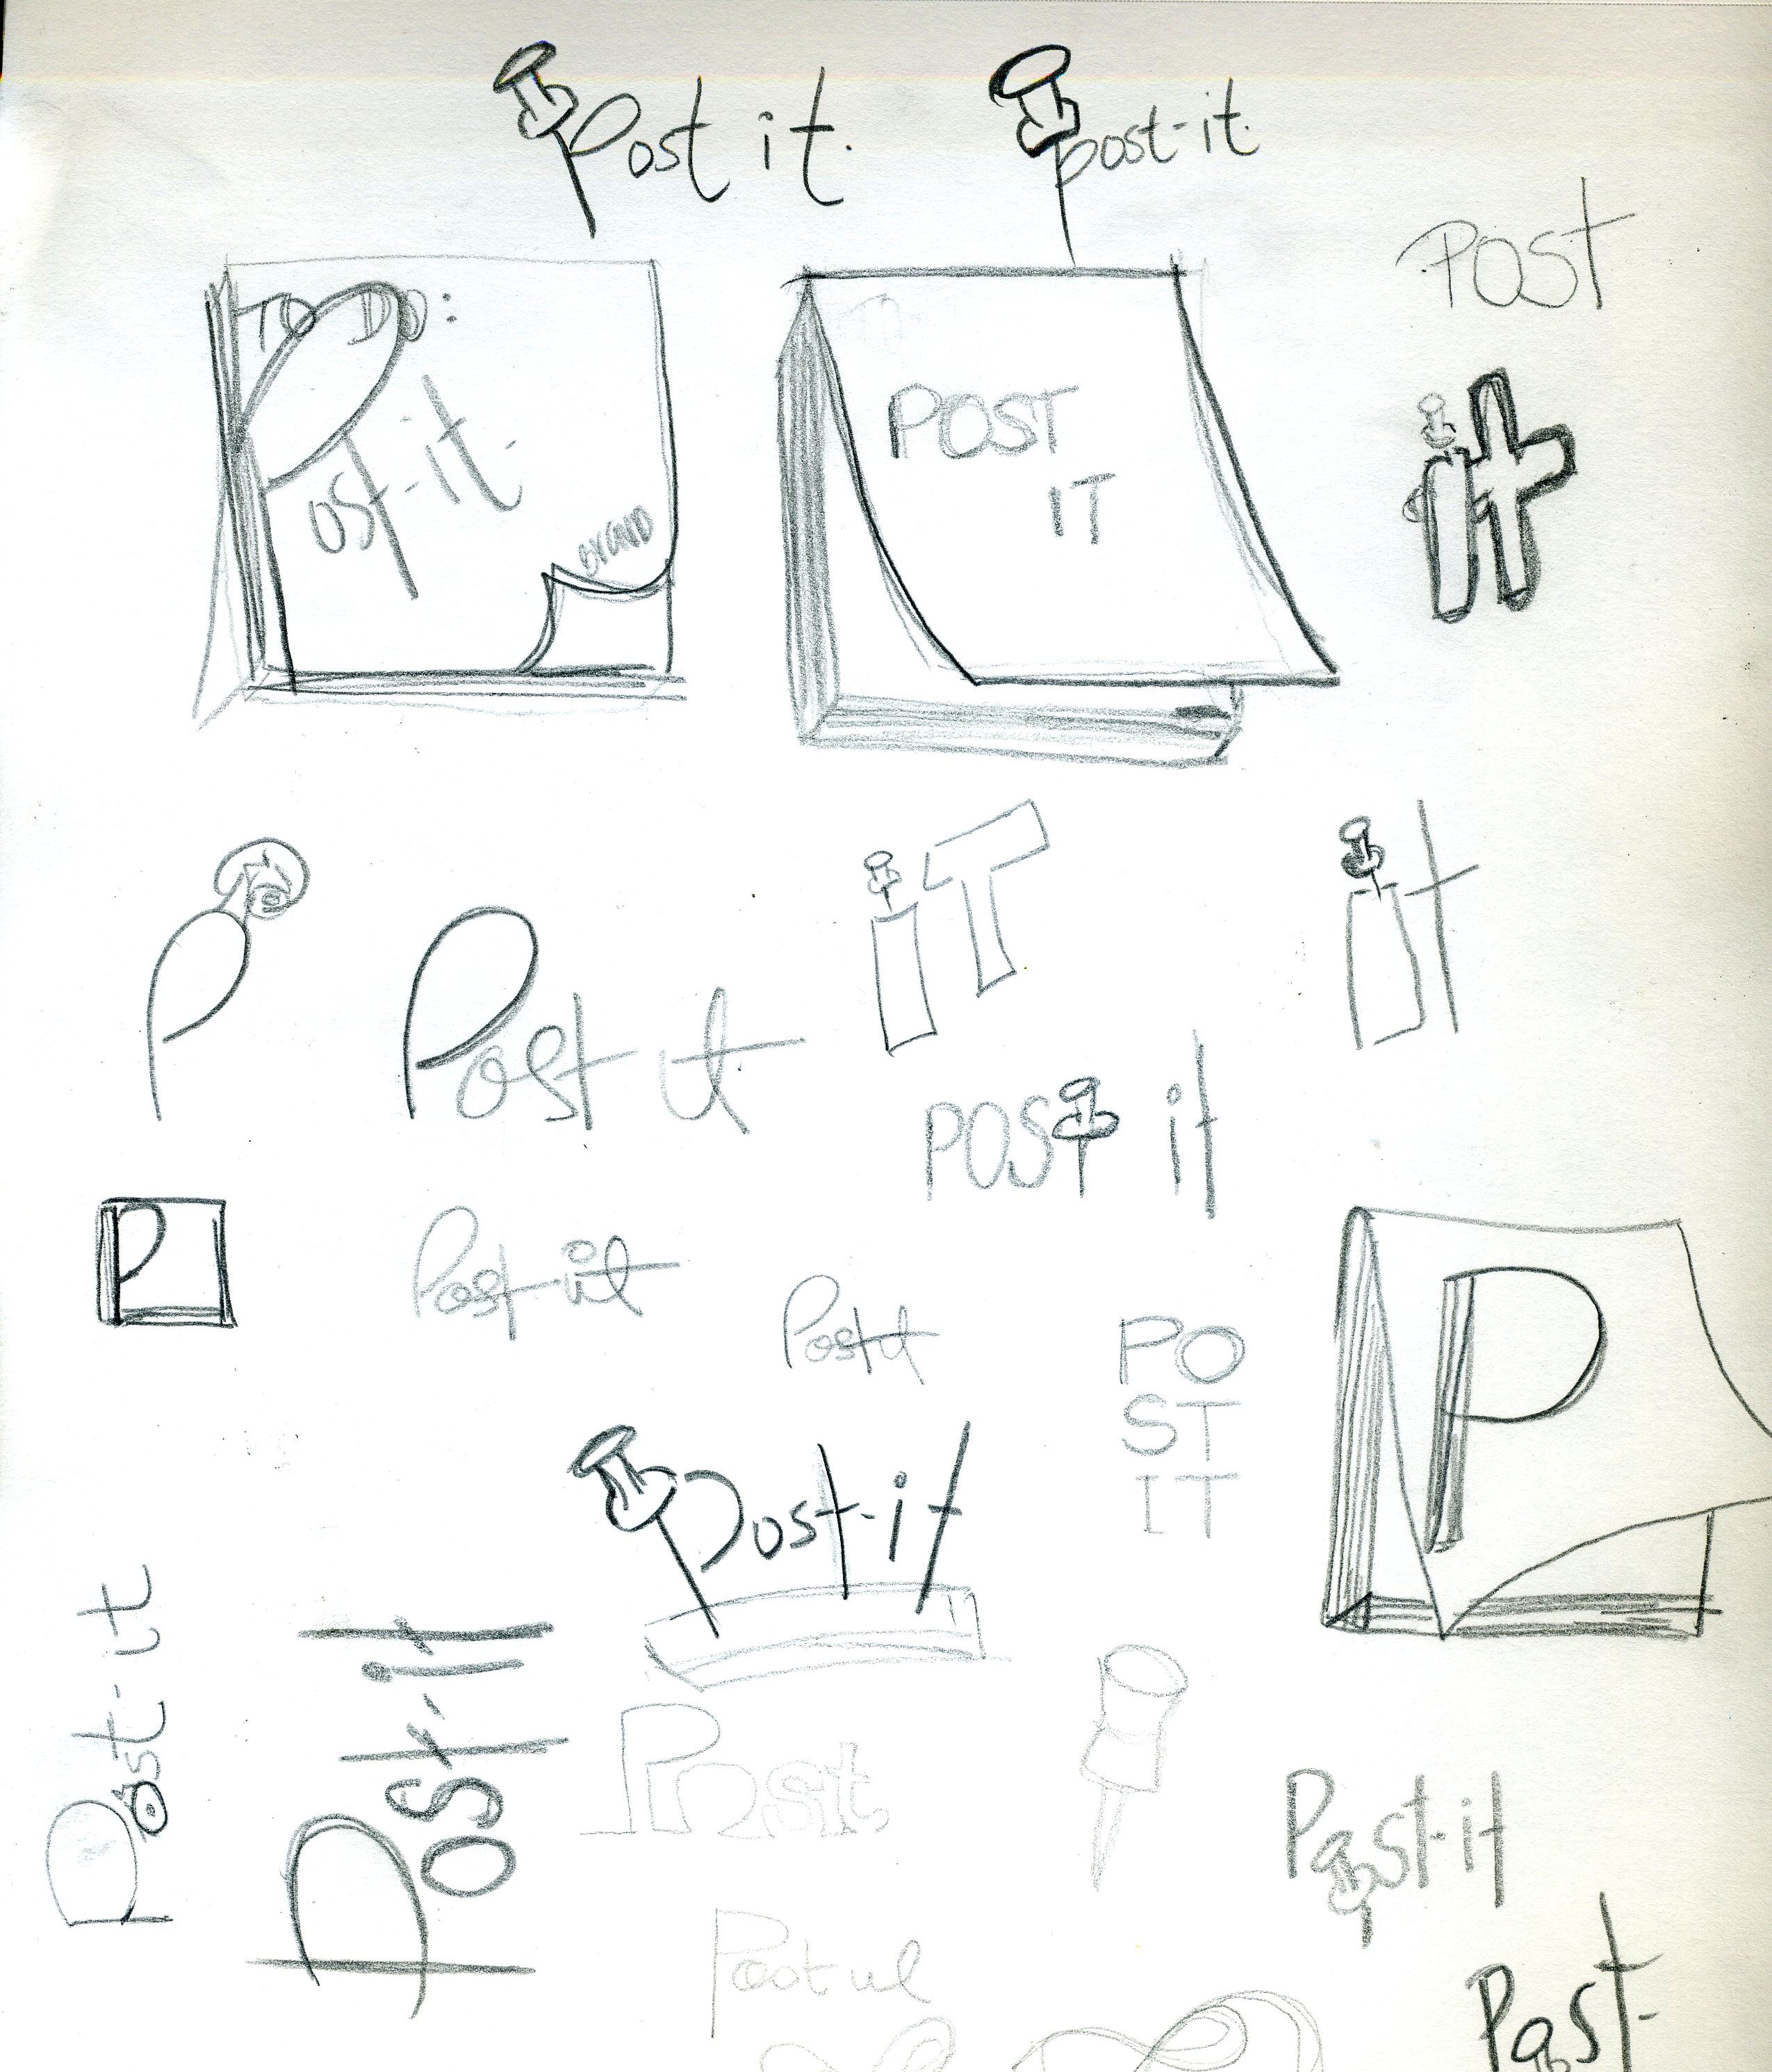 Post it.
post-it.
POST
it
TO DO:
Post-it.
BRAND
POST
IT
P
Post it
iT
it
POST it
P
Post-it
Post it
PO
ST
IT
P
Post-it
Post-it
Post-it
Post
Post-it
Post it
Post-